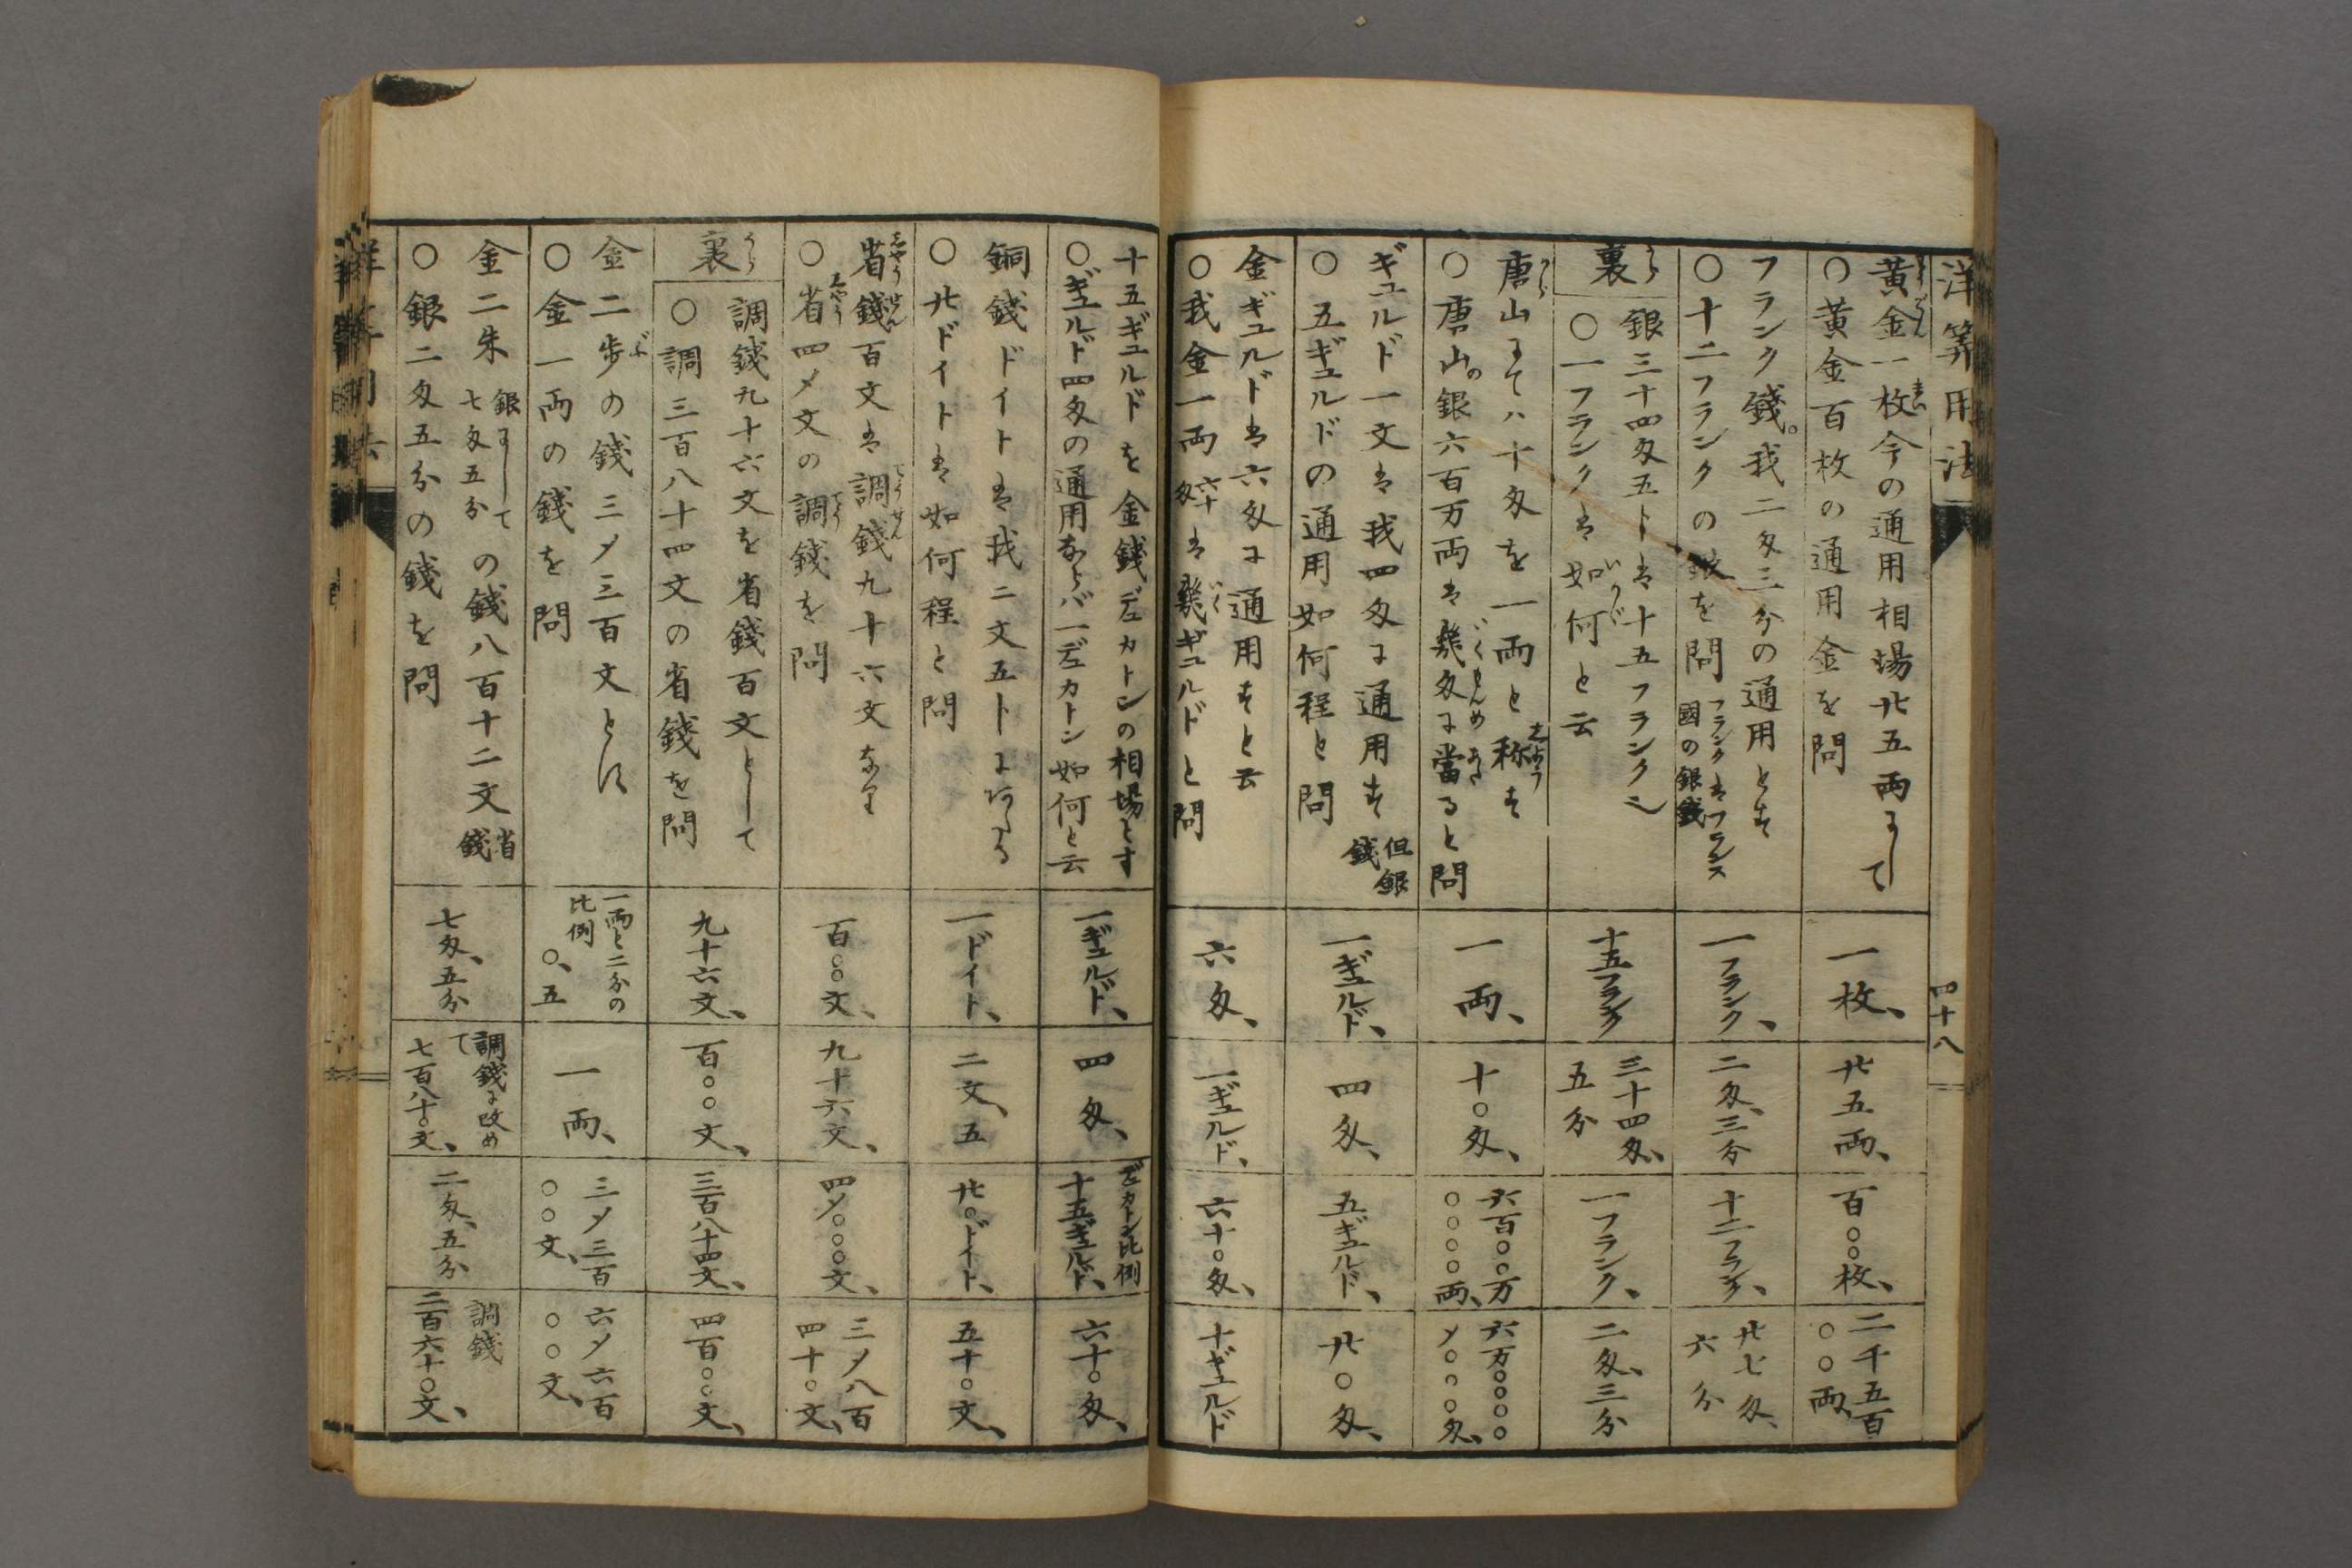 洋算用法
四十八
黄金一枚今の通用相場廿五両にして
○黄金百枚の通用金を問
一枚、
廿五両、
百〇〇枚、
二千五百
〇〇両、
フランク錢。我二匁三分の通用とす
○十二フランクの銀を問
フランクはフランス
國の銀錢
一フランク、
二匁、三分
十二フランク、
廿七匁、
六分
裏
銀三十四匁五分は十五フランク
○一フランクは如何と云
十五フランク
三十四匁、
五分
一フランク、
二匁、三分
唐山にてハ十匁を一両と称す
○唐山の銀六百万両は幾匁に當ると問
一両、
十〇匁、
六百〇〇万
〇〇〇〇両、
六万〇〇〇〇
〆〇〇〇匁、
ギュルド一文は我四匁に通用す
但銀
錢
○五ギュルドの通用如何程と問
一ギュルド、
四匁、
五ギュルド、
廿〇匁、
金ギュルドは六匁に通用すと云
○我金一両六十匁は幾ギュルドと問
六匁、
一ギュルド、
六十〇匁、
十ギュルド
十五ギュルドを金錢デュカトンの相場とす
○ギュルド四匁の通用ならバ一デュカトン如何と云
一ギュルド、
四匁、
デュカトン比例
十五ギュルド、
六十〇匁、
銅錢ドイトは我二文五トにあたる
○廿ドイトは如何程と問
一ドイト、
二文、五
廿〇ドイト、
五十〇文、
省錢百文は調錢九十六文なり
○省四〆文の調錢を問
百〇〇文、
九十六文、
四〆〇〇〇文、
三〆八百
四十〇文、
裏
調錢九十六文を省錢百文として
○調三百八十四文の省錢を問
九十六文、
百〇〇文、
三百八十四文、
四百〇〇文、
金二歩の錢三〆三百文とす
○金一両の錢を問
一両と二分の
比例
〇、五
一両、
三〆三百
〇〇文、
六〆六百
〇〇文、
金二朱
銀にして
七匁五分
の錢八百十二文
省
錢
○銀二匁五分の錢を問
七匁、五分
調錢に改め
て
七百八十〇文、
二匁、五分
調錢
二百六十〇文、